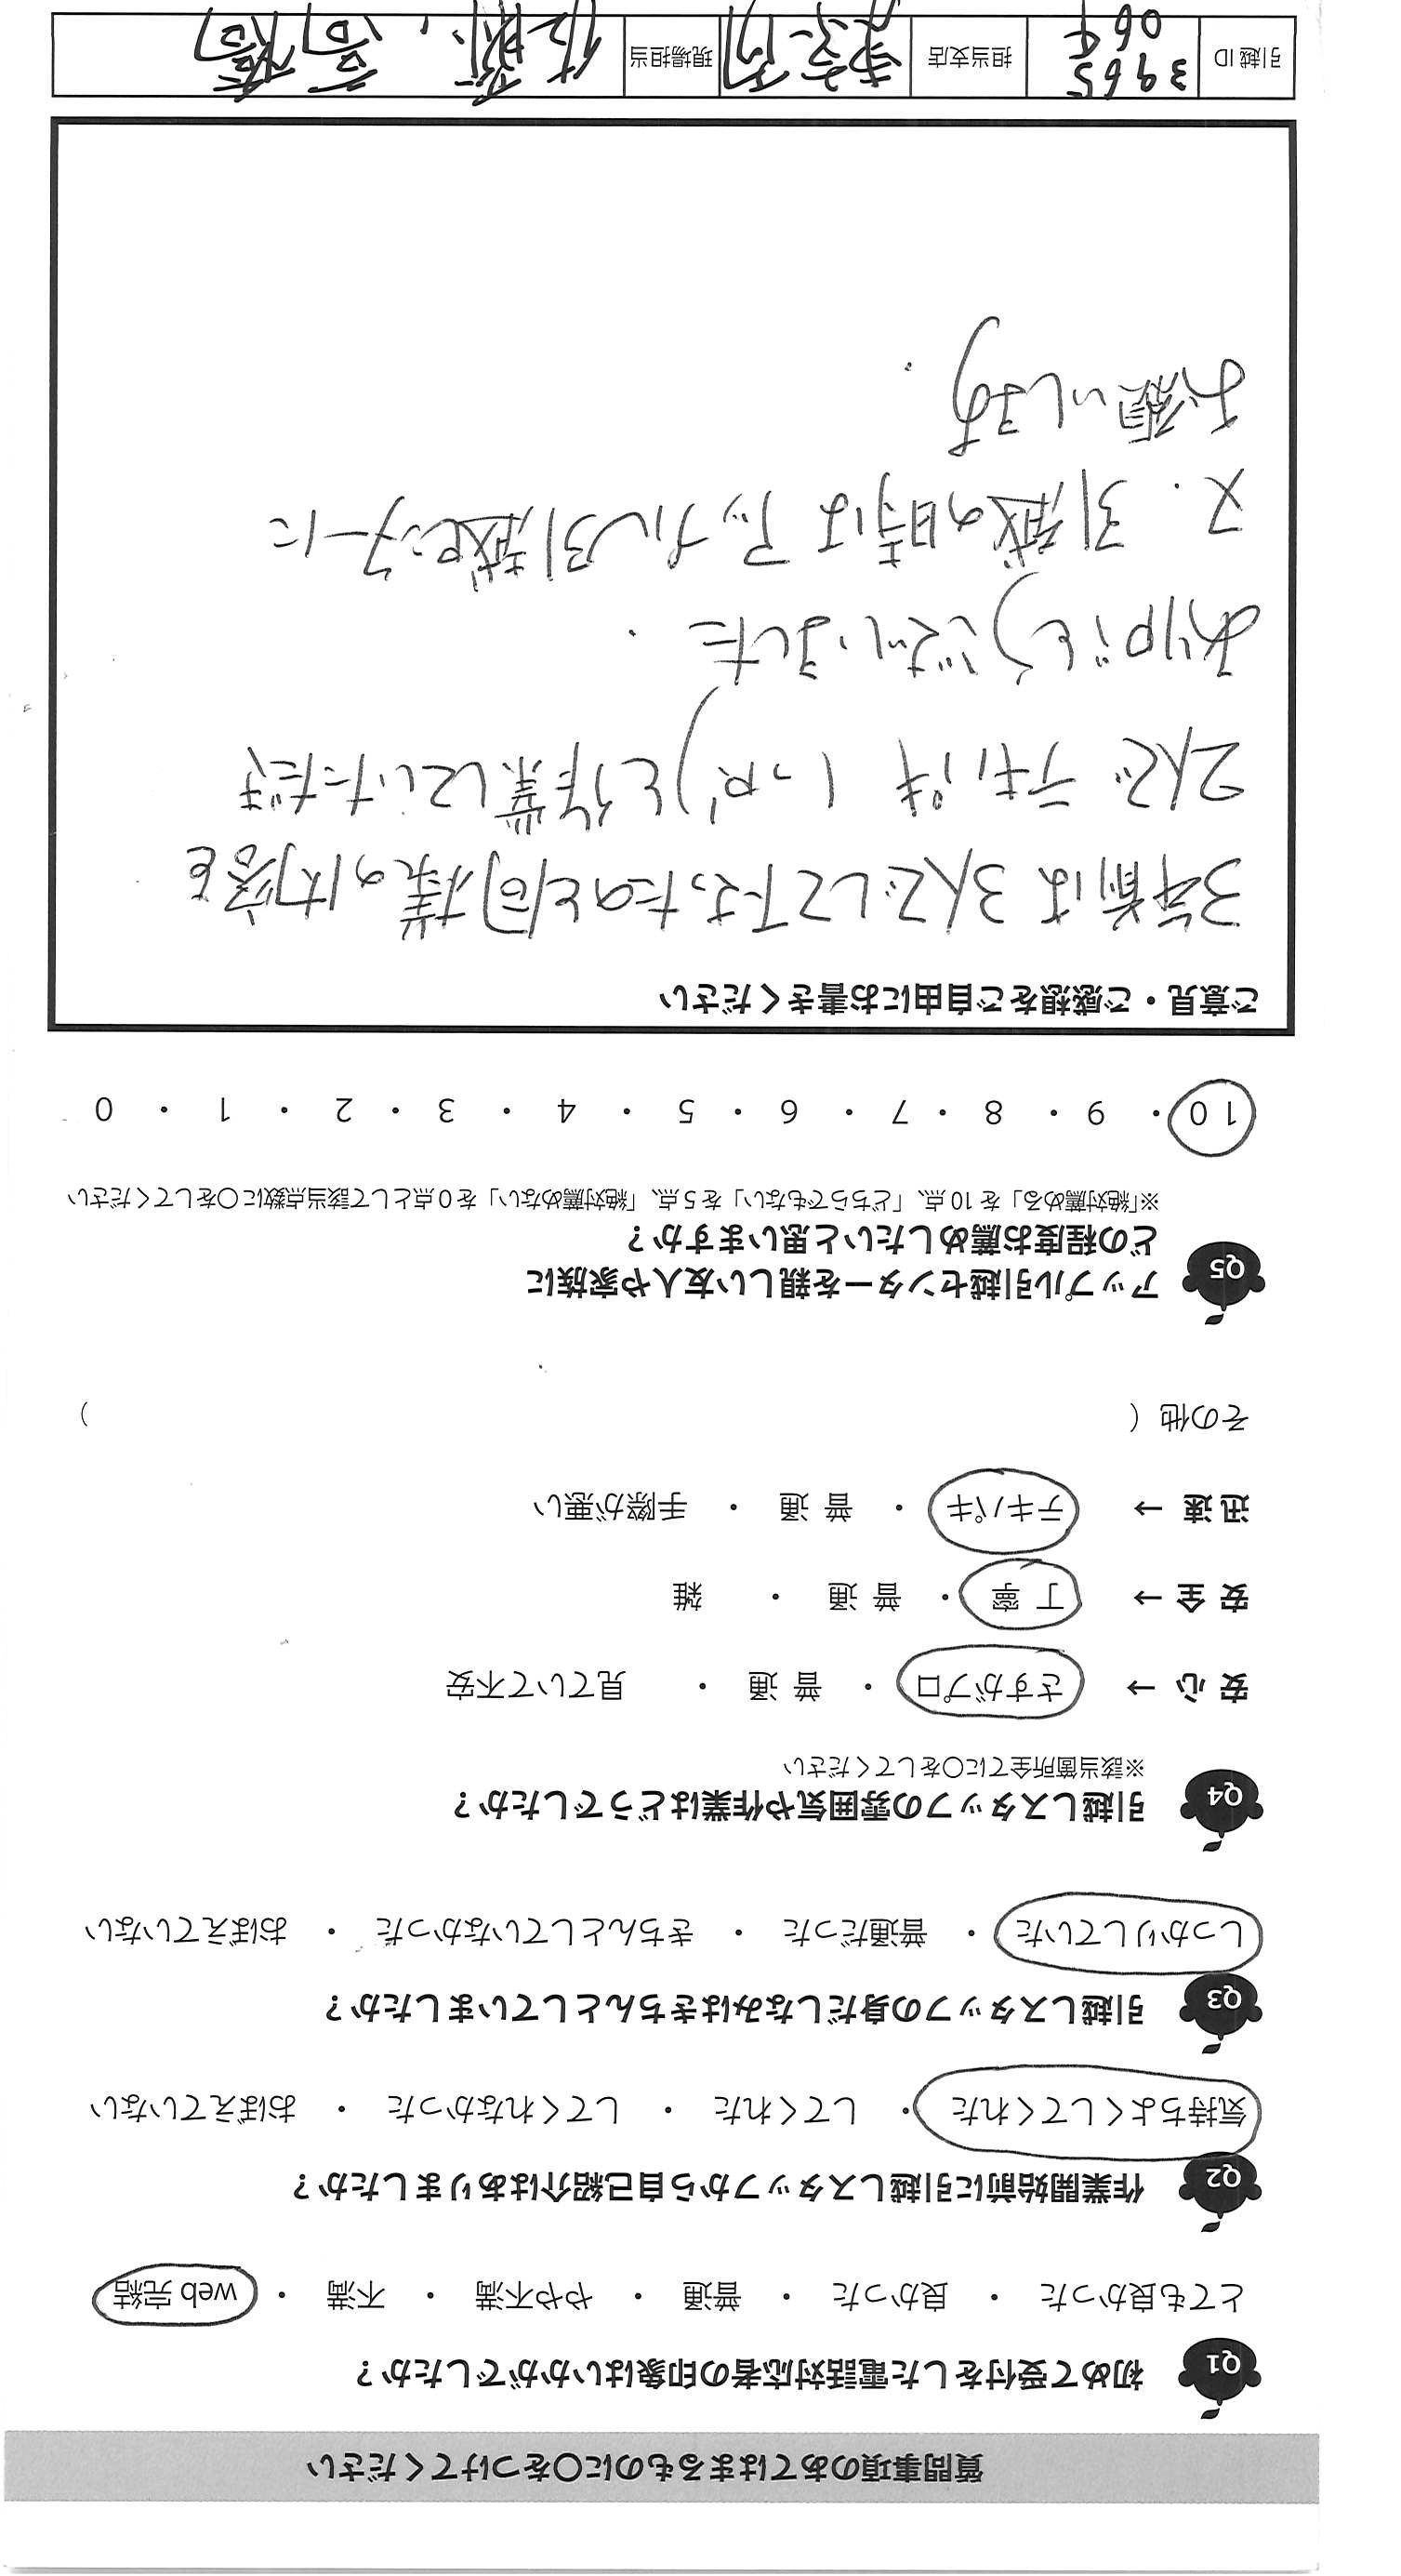 質問事項のあてはまるものに〇をつけてください
Q1 初めて受付をした電話対応者の印象はいかがでしたか？
とても良かった ・ 良かった ・ 普通 ・ やや不満 ・ 不満 ・ web 完結
Q2 作業開始前に引越しスタッフから自己紹介はありましたか？
気持ちよくしてくれた ・ してくれた ・ してくれなかった ・ おぼえていない
Q3 引越しスタッフの身だしなみはきちんとしていましたか？
しっかりしていた ・ 普通だった ・ きちんとしていなかった ・ おぼえていない
Q4 引越しスタッフの雰囲気や作業はどうでしたか？
※該当箇所全てに〇をしてください
安 心 → さすがプロ ・ 普 通 ・ 見ていて不安
安 全 → 丁 寧 ・ 普 通 ・ 雑
迅 速 → テキパキ ・ 普 通 ・ 手際が悪い
その他（ ）
Q5 アップル引越センターを親しい友人や家族に
どの程度お薦めしたいと思いますか？
※「絶対薦める」を 10 点、「どちらでもない」を 5 点、「絶対薦めない」を 0 点として該当点数に〇をしてください
10 ・ 9 ・ 8 ・ 7 ・ 6 ・ 5 ・ 4 ・ 3 ・ 2 ・ 1 ・ 0
ご意見・ご感想をご自由にお書きください
3年前は 3人でして下さったのと同様の内容を
2人で テキパキ しっかりと作業していただき
ありがとうございました.
又. 引越の時は アップル引越センターに
お願いします.
引越 ID 3965 064 担当支店 現場担当 佐 高橋